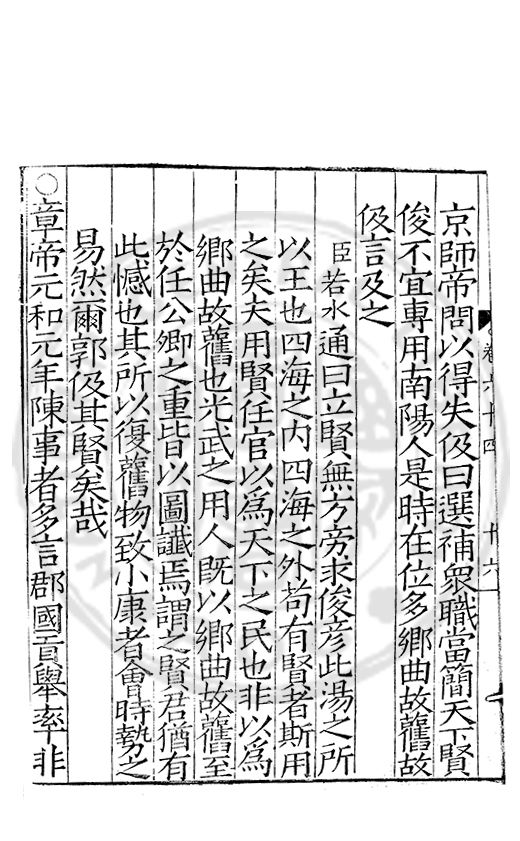 京師帝問以得失伋曰選補衆職當簡天下賢
俊不宜專用南陽人是時在位多鄉曲故舊故
伋言及之
臣若水通曰立賢無方旁求俊彦此湯之所
以王也四海之内四海之外苟有賢者斯用
之矣夫用賢任官以爲天下之民也非以爲
鄉曲故舊也光武之用人既以鄉曲故舊至
於任公卿之重皆以圖讖焉謂之賢君猶有
此憾也其所以復舊物致小康者會時勢之
易然爾郭伋其賢矣哉
○章帝元和元年陳事者多言郡國貢舉率非
卷六十四
廿六